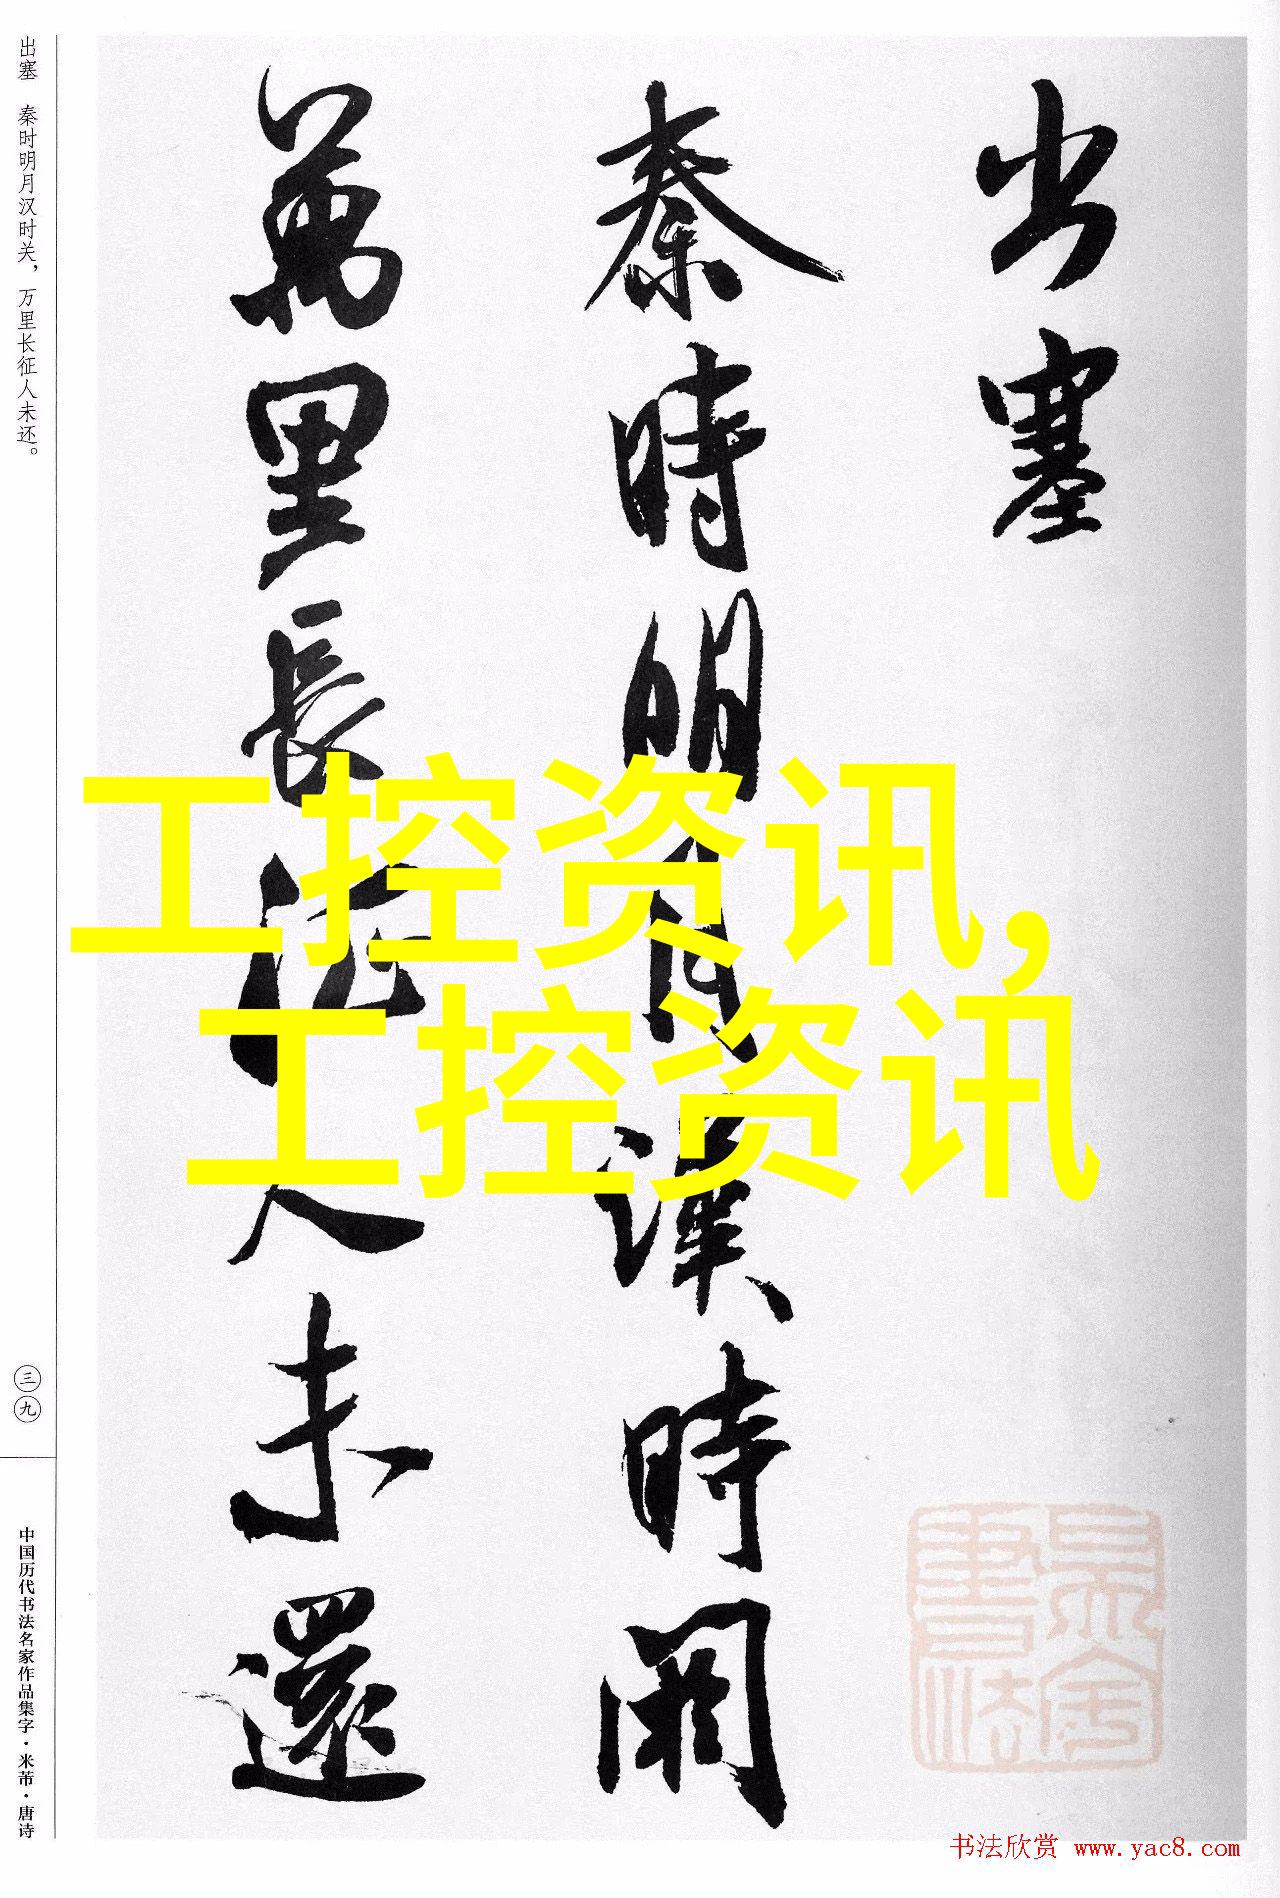 出塞
秦時明月漢時関
萬里長征人未還
出塞 秦时明月汉时关，万里长征人未还。
三九
中国历代书法名家作品集字·米芾·唐诗
工控资讯，
工控资讯
书法欣赏 www.yac8.com